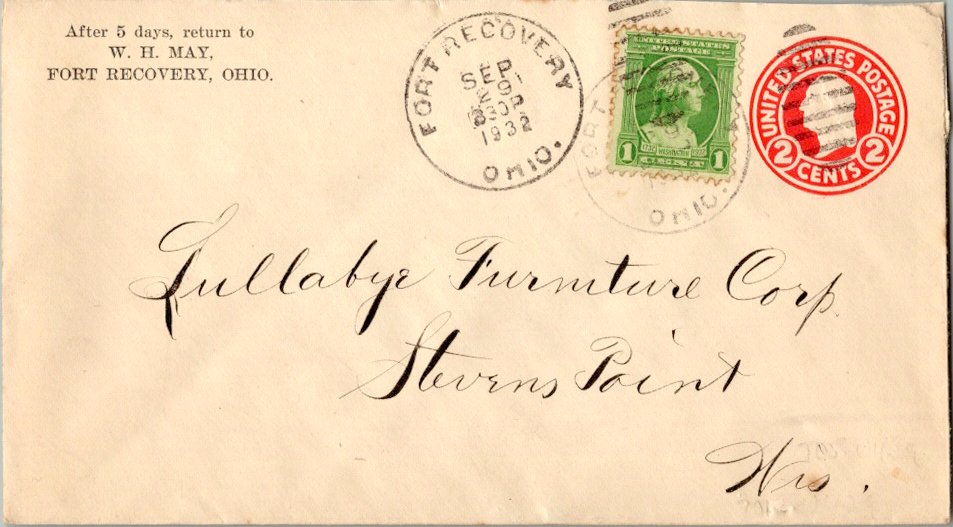 After 5 days, return to
W. H. MAY,
FORT RECOVERY, OHIO.
FORT RECOVERY
SEP
2
1932
OHIO.
FORT
OHIO.
UNITED STATES
POSTAGE
1732 WASHINGTON 1932
1 1
UNITED STATES POSTAGE
2 CENTS 2
Lullabye Furniture Corp.
Stevens Point
Wis.